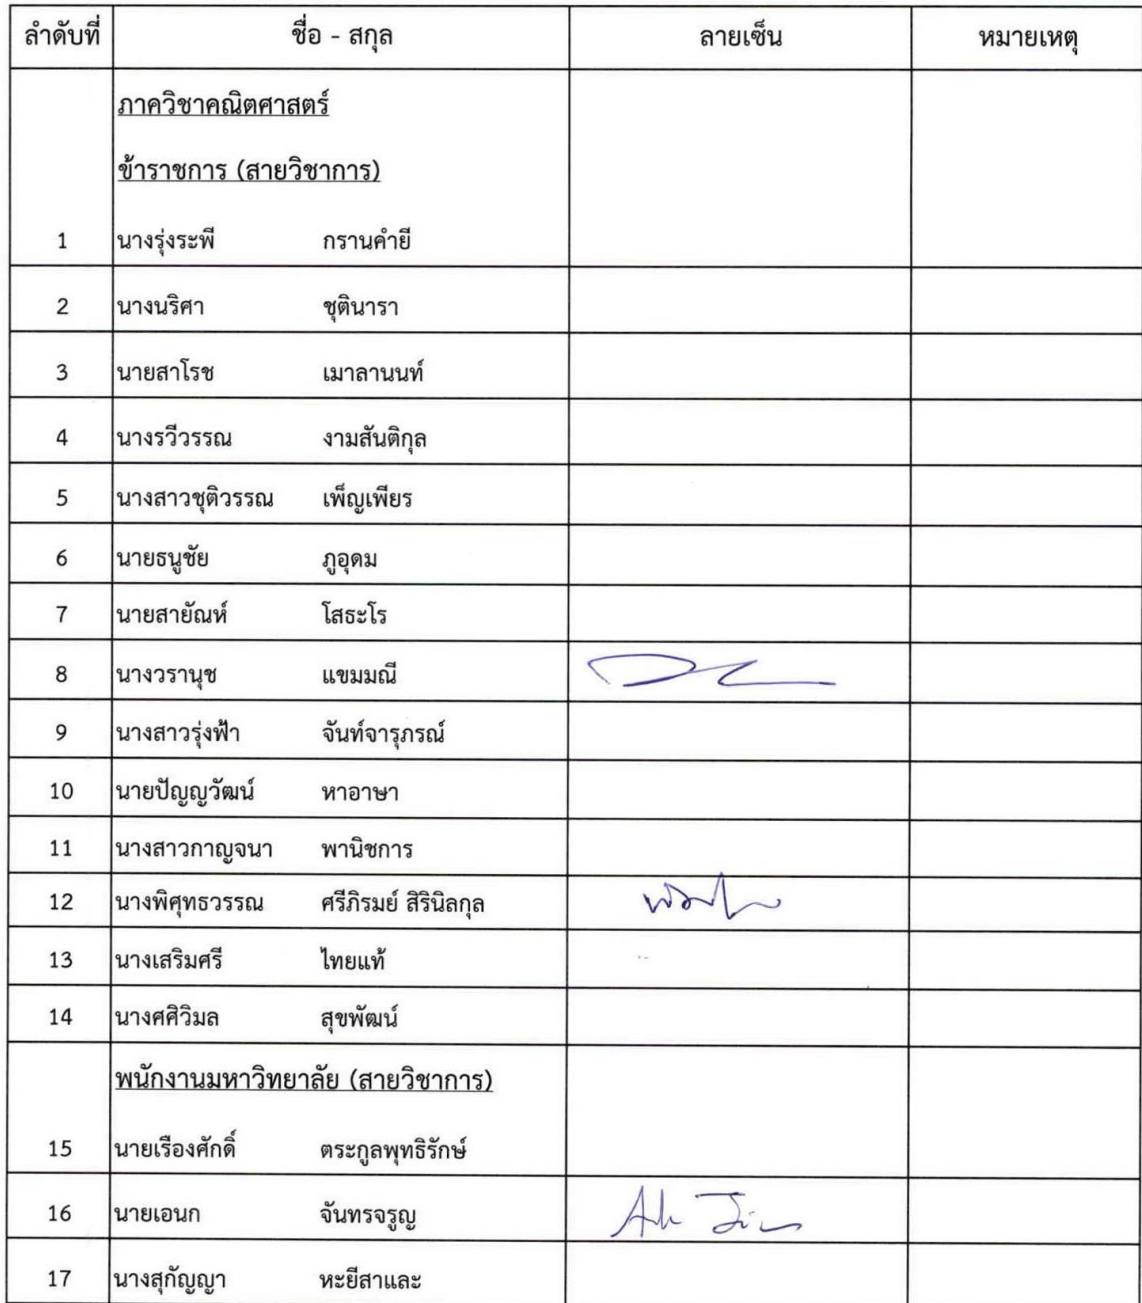 ลำดับที่ ชื่อ - สกุล ลายเซ็น หมายเหตุ
ภาควิชาคณิตศาสตร์
ข้าราชการ (สายวิชาการ)
1 นางรุ่งระพี กรานคำยี
2 นางนริศา ชุตินารา
3 นายสาโรช เมาลานนท์
4 นางรวีวรรณ งามสันติกุล
5 นางสาวชุติวรรณ เพ็ญเพียร
6 นายธนูชัย ภูอุดม
7 นายสายัณห์ โสธะโร
8 นางวรานุช แขมมณี
9 นางสาวรุ่งฟ้า จันท์จารุภรณ์
10 นายปัญญวัฒน์ หาอาษา
11 นางสาวกาญจนา พานิชการ
12 นางพิศุทธวรรณ ศรีภิรมย์ สิรินิลกุล
13 นางเสริมศรี ไทยแท้
14 นางศศิวิมล สุขพัฒน์
พนักงานมหาวิทยาลัย (สายวิชาการ)
15 นายเรืองศักดิ์ ตระกูลพุทธิรักษ์
16 นายเอนก จันทรจรูญ
17 นางสุกัญญา หะยีสาและ